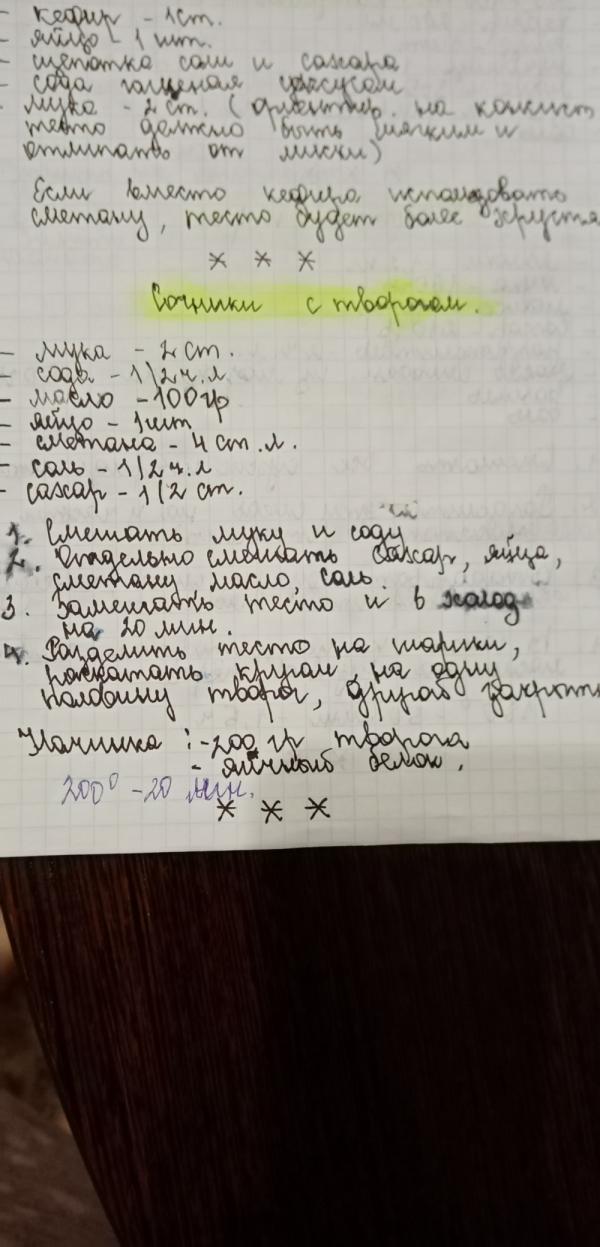 - кефир - 1ст.
- яйцо - 1 шт.
- щепотка соли и сахара
- сода гашеная уксусом
- мука - 2 ст. (ориентир. на
тесто должно быть мягким и
отлипать от миски)
Если вместо кефира использовать
сметану, тесто будет более
* * *
Сочники с творогом.
- мука - 2 ст.
- сода - 1/2 ч.л
- масло - 100 гр
- яйцо - 1шт
- сметана - 4 ст.л.
- соль - 1/2 ч.л
- сахар - 1/2 ст.
1. Смешать муку и соду
2. Отдельно смешать сахар, яйца,
сметану масло, соль.
3. Замешать тесто и в холод
на 20 мин.
4. Разделить тесто на шарики,
раскатать кругом, на одну
половину творог, другой закрыть
Начинка: - 200 гр творога
- яичный белок.
200° - 20 мин.
* * *